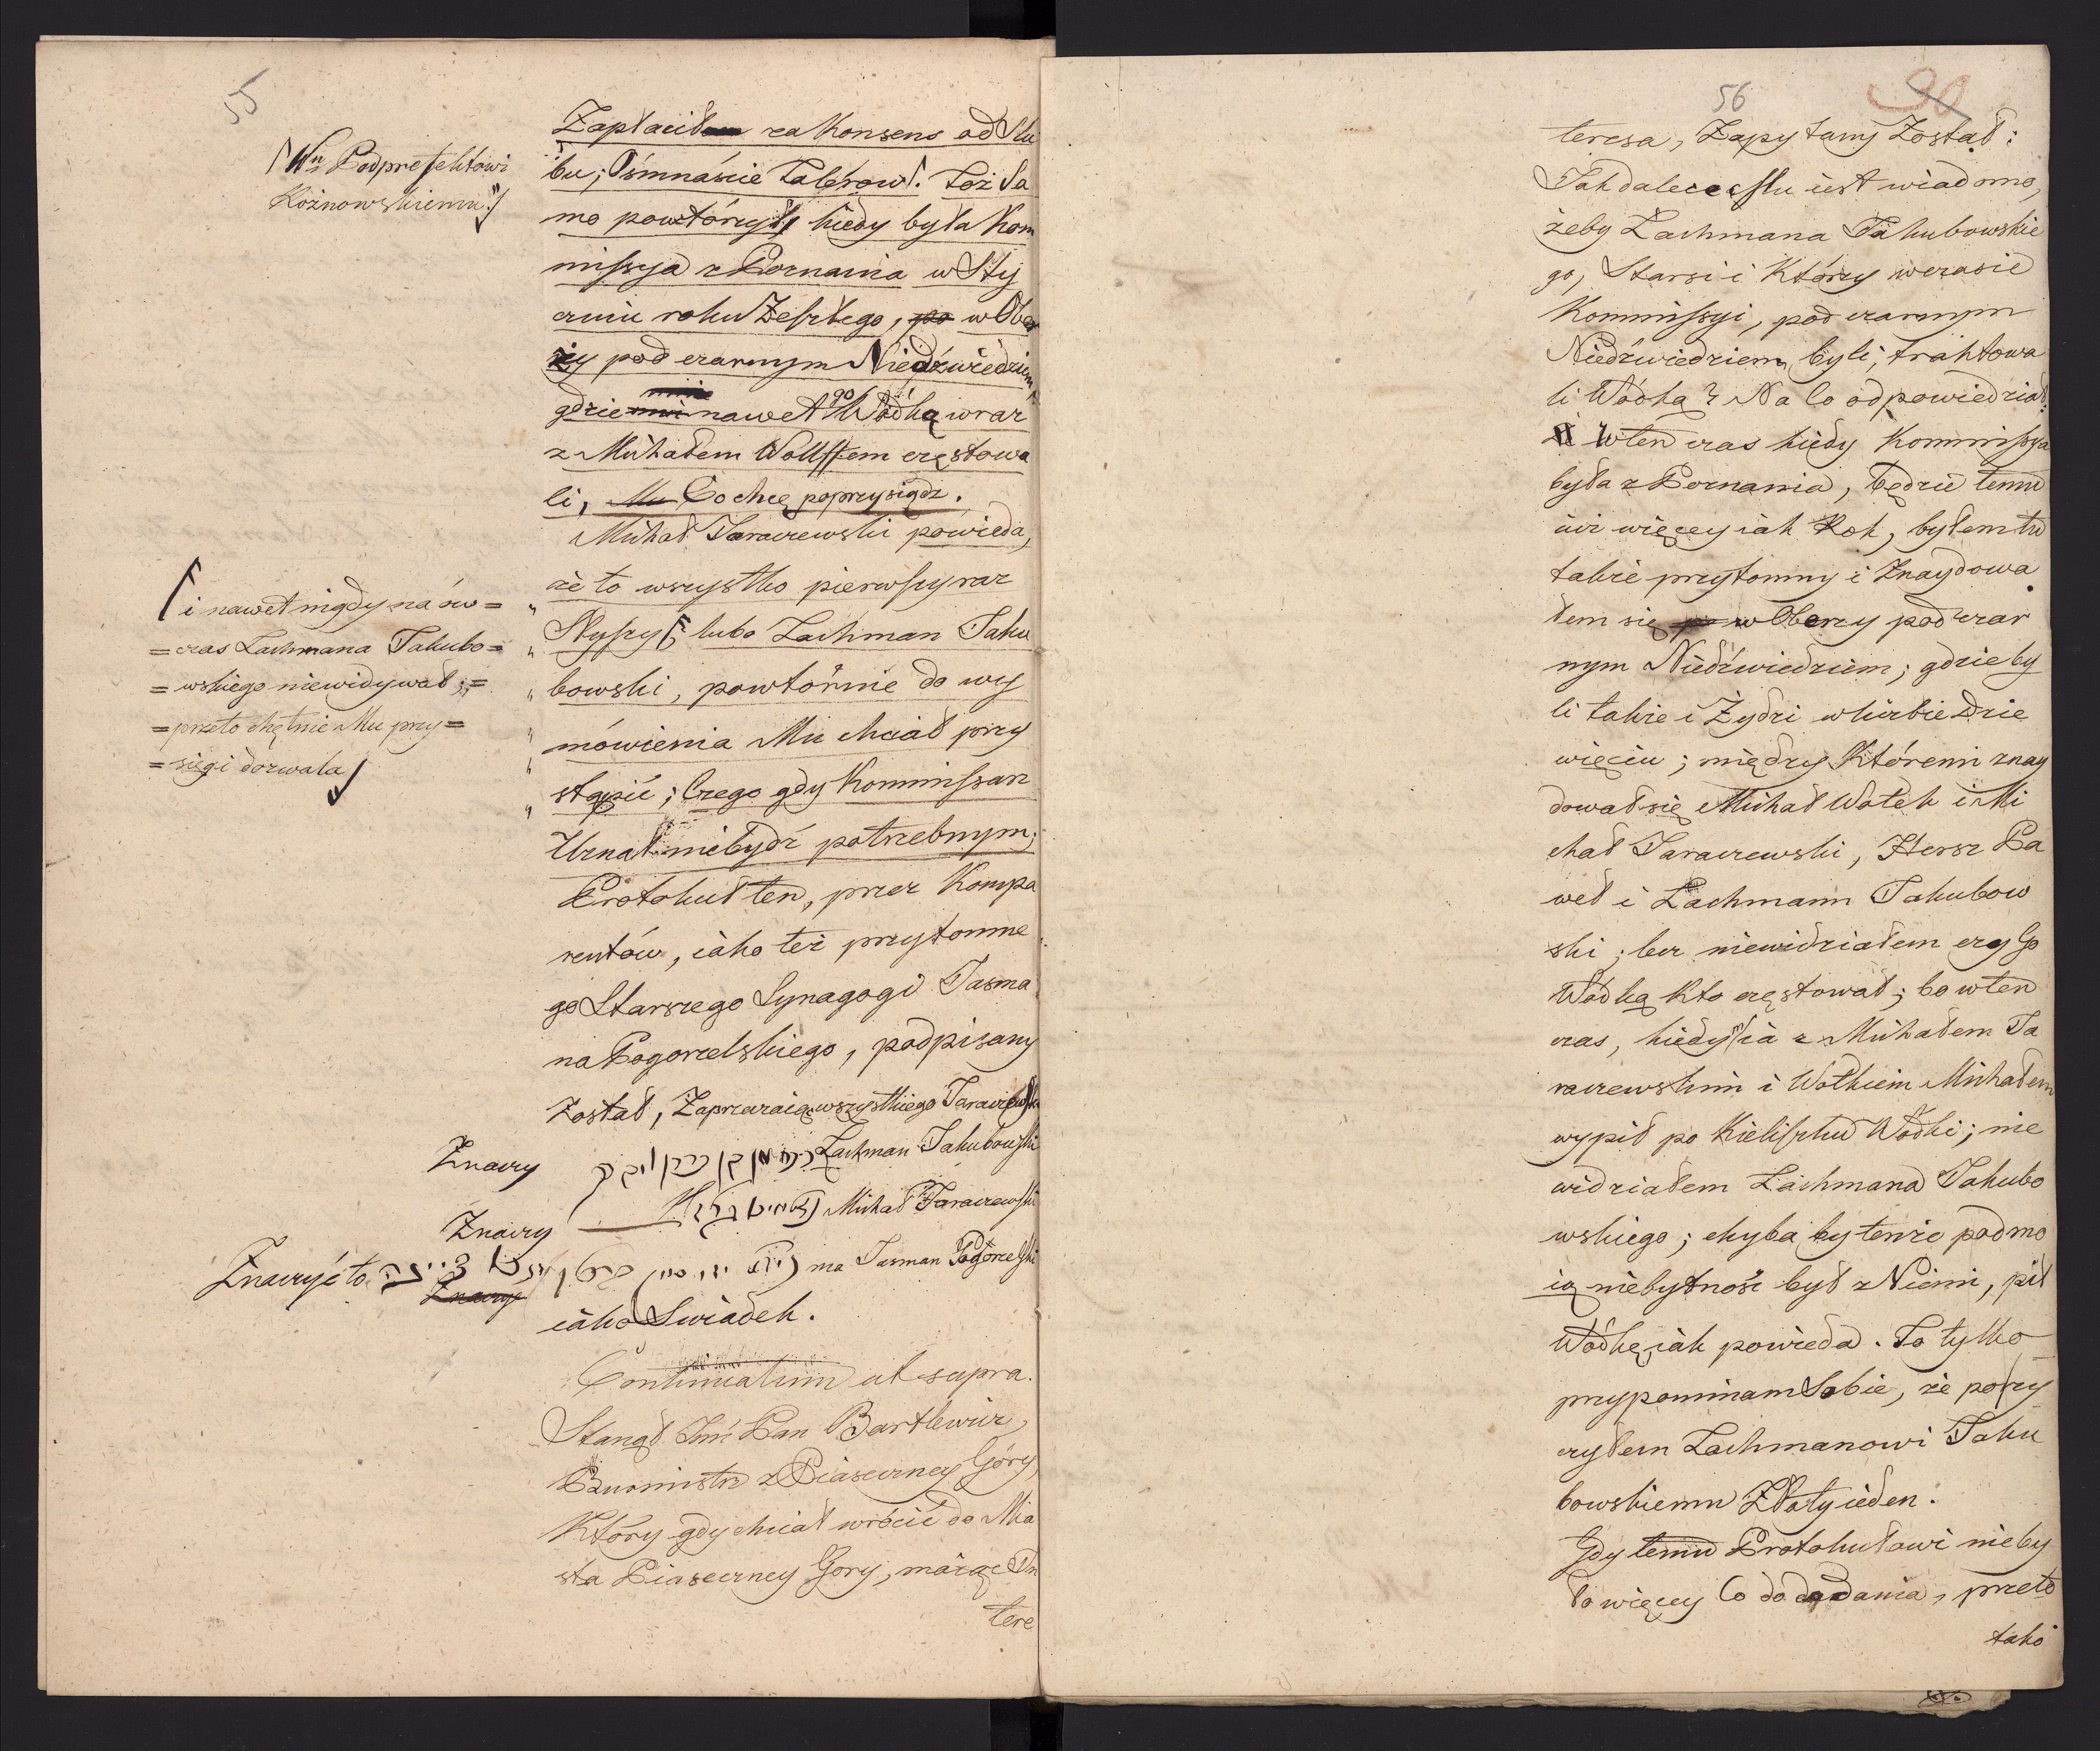 55
Wu Podprefektowi
Koźnowskiemu
Zapłacił za Konsens od Slu
bu; Ośmnaście Talerow. Toż Sa
mo powtórzył kiedy była Kom
missya z Poznania w Sty
czniu roku Zeszłego, po w Ober
ży pod czarnym Niedźwiedziem
gdzie nawet go Wódką wraz
z Michałem Wolffem częstowa
li, Co chcę poprzysiądz.
Michał Taraczewski powieda,
że to wszystko pierwszy raz
Słyszy lubo Lachman Jaku
bowski, powtórnie do wy
mówienia Mu chciał przy
stąpić; Czego gdy Kommissarz
Uznał niebydź potrzebnym;
i nawet nigdy na ów=
=czas Lachmana Jakubo=
=wskiego niewidywał;=
=przeto chętnie Mu przy=
=sięgi dozwala
Protokuł ten, przez Kompa
rentów, iako też przytomne
go Starszego Synagogi Jasma
na Pogorzelskiego, podpisany
Został, Zaprzeczaiąc wszystkiego Taraczewski
Znaczy Lachman Jakubowski
Znaczy Michał Taraczewski
Znaczyć to ma Jasman Pogorzelski
Znaczy
iako Swiadek.
Continuatum ut supra.
Stanął Imć Pan Bartlewicz,
Burmistrz z Piaseczney Góry,
Który gdy chciał wrócić do Mia
sta Piaseczney Gory, maiąc In
tere
56
90
teresa, Zapytany Został:
Jak dalece Mu iest wiadomo,
żeby Lachmana Jakubowskie
go, Starsi i Którzy w czasie
Kommissyi, pod czarnym
Niedźwiedziem byli, traktowa
li Wódką? Na Co odpowiedział:
Wten czas kiedy Kommissya
była z Poznania, będzie temu
iuż więcey iak Rok, byłem tu
także przytomny i Znaydowa
łem się w Oberzy pod czar
nym Niedźwiedziem; gdzie by
li także i Żydzi w liczbie Dzie
więciu; między Któremi znay
dował się Michał Wołek i Mi
chał Taraczewski, Hersz Pa
weł i Lachmann Jakubow
ski; lecz niewidziałem czy Go
Wódką Kto częstował; bo wten
czas, kiedy ia z Michałem Ta
raczewskim i Wołkiem Michałem
wypił po Kieliszku Wódki; nie
widziałem Lachmana Jakubo
wskiego; chyba by tenże pod mo
ią niebytność był z Niemi, pił
Wódkę, iak powieda. To tylko
przypominam Sobie, że poży
czyłem Lachmanowi Jaku
bowskiemu Złoty ieden.
Gdy temu Protokułowi nieby
ło więcey Co do dodania, przeto
tako